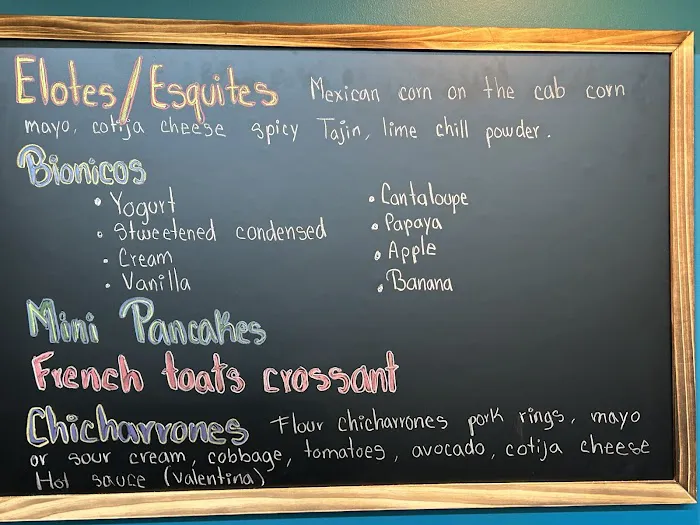 Elotes/Esquites Mexican corn on the cab corn
mayo, cotija cheese spicy Tajin, lime chill powder.
Bionicos
• Yogurt • Cantaloupe
• Stweetened condensed • Papaya
• Cream • Apple
• Vanilla • Banana
Mini Pancakes
French toats crossant
Chicharrones Flour chicharrones pork rings, mayo
or sour cream, cobbage, tomatoes, avocado, cotija cheese
Hot sauce (valentina)